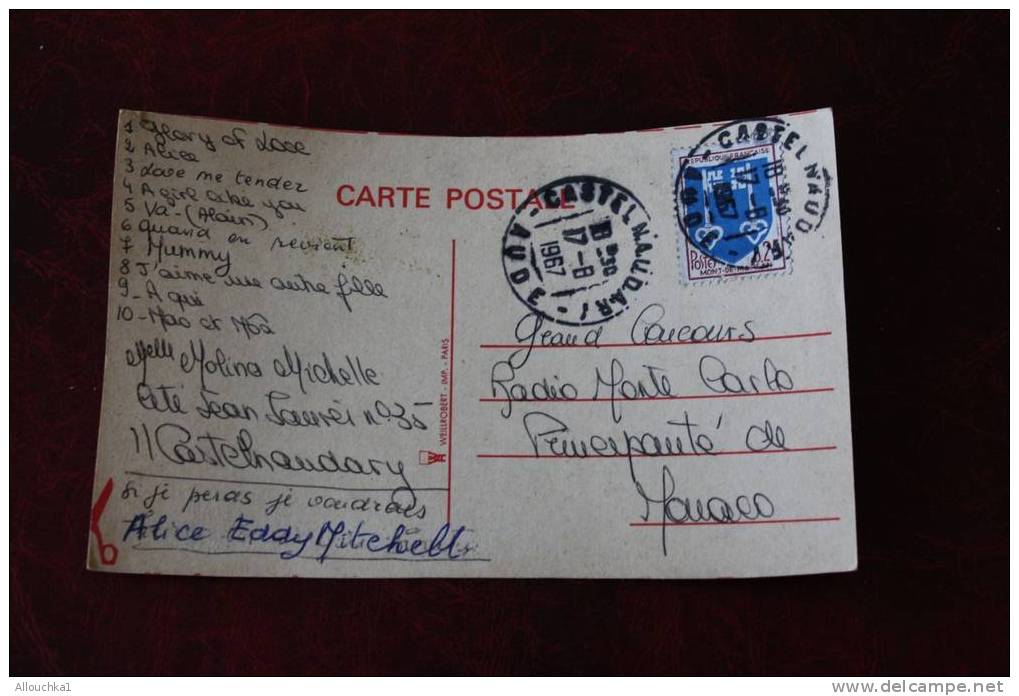 1 Glory of Love
2 Alice
3 Love me tender
4 A girl like you
5 Va - (Alain)
6 Quand on revient
7 Mummy
8 J'aime une autre fille
9 - A qui
10 - Mao et Moa
Melle Molina Michelle
Cité Jean Jaurès n° 35
11 Castelnaudary
Si je perds je voudrais
Alice Eddy Mitchell
CARTE POSTALE
WEILLROBERT - IMP. - PARIS
CASTELNAUDARY
17-8
1967
AUDE
REPUBLIQUE FRANÇAISE
CASTELNAUD
18
17-8
1967
AUDE
Postes
MONT-DE-MARSAN
Grand Concours
Radio Monte Carlo
Principauté de
Monaco
Allouchka1
www.delcampe.net